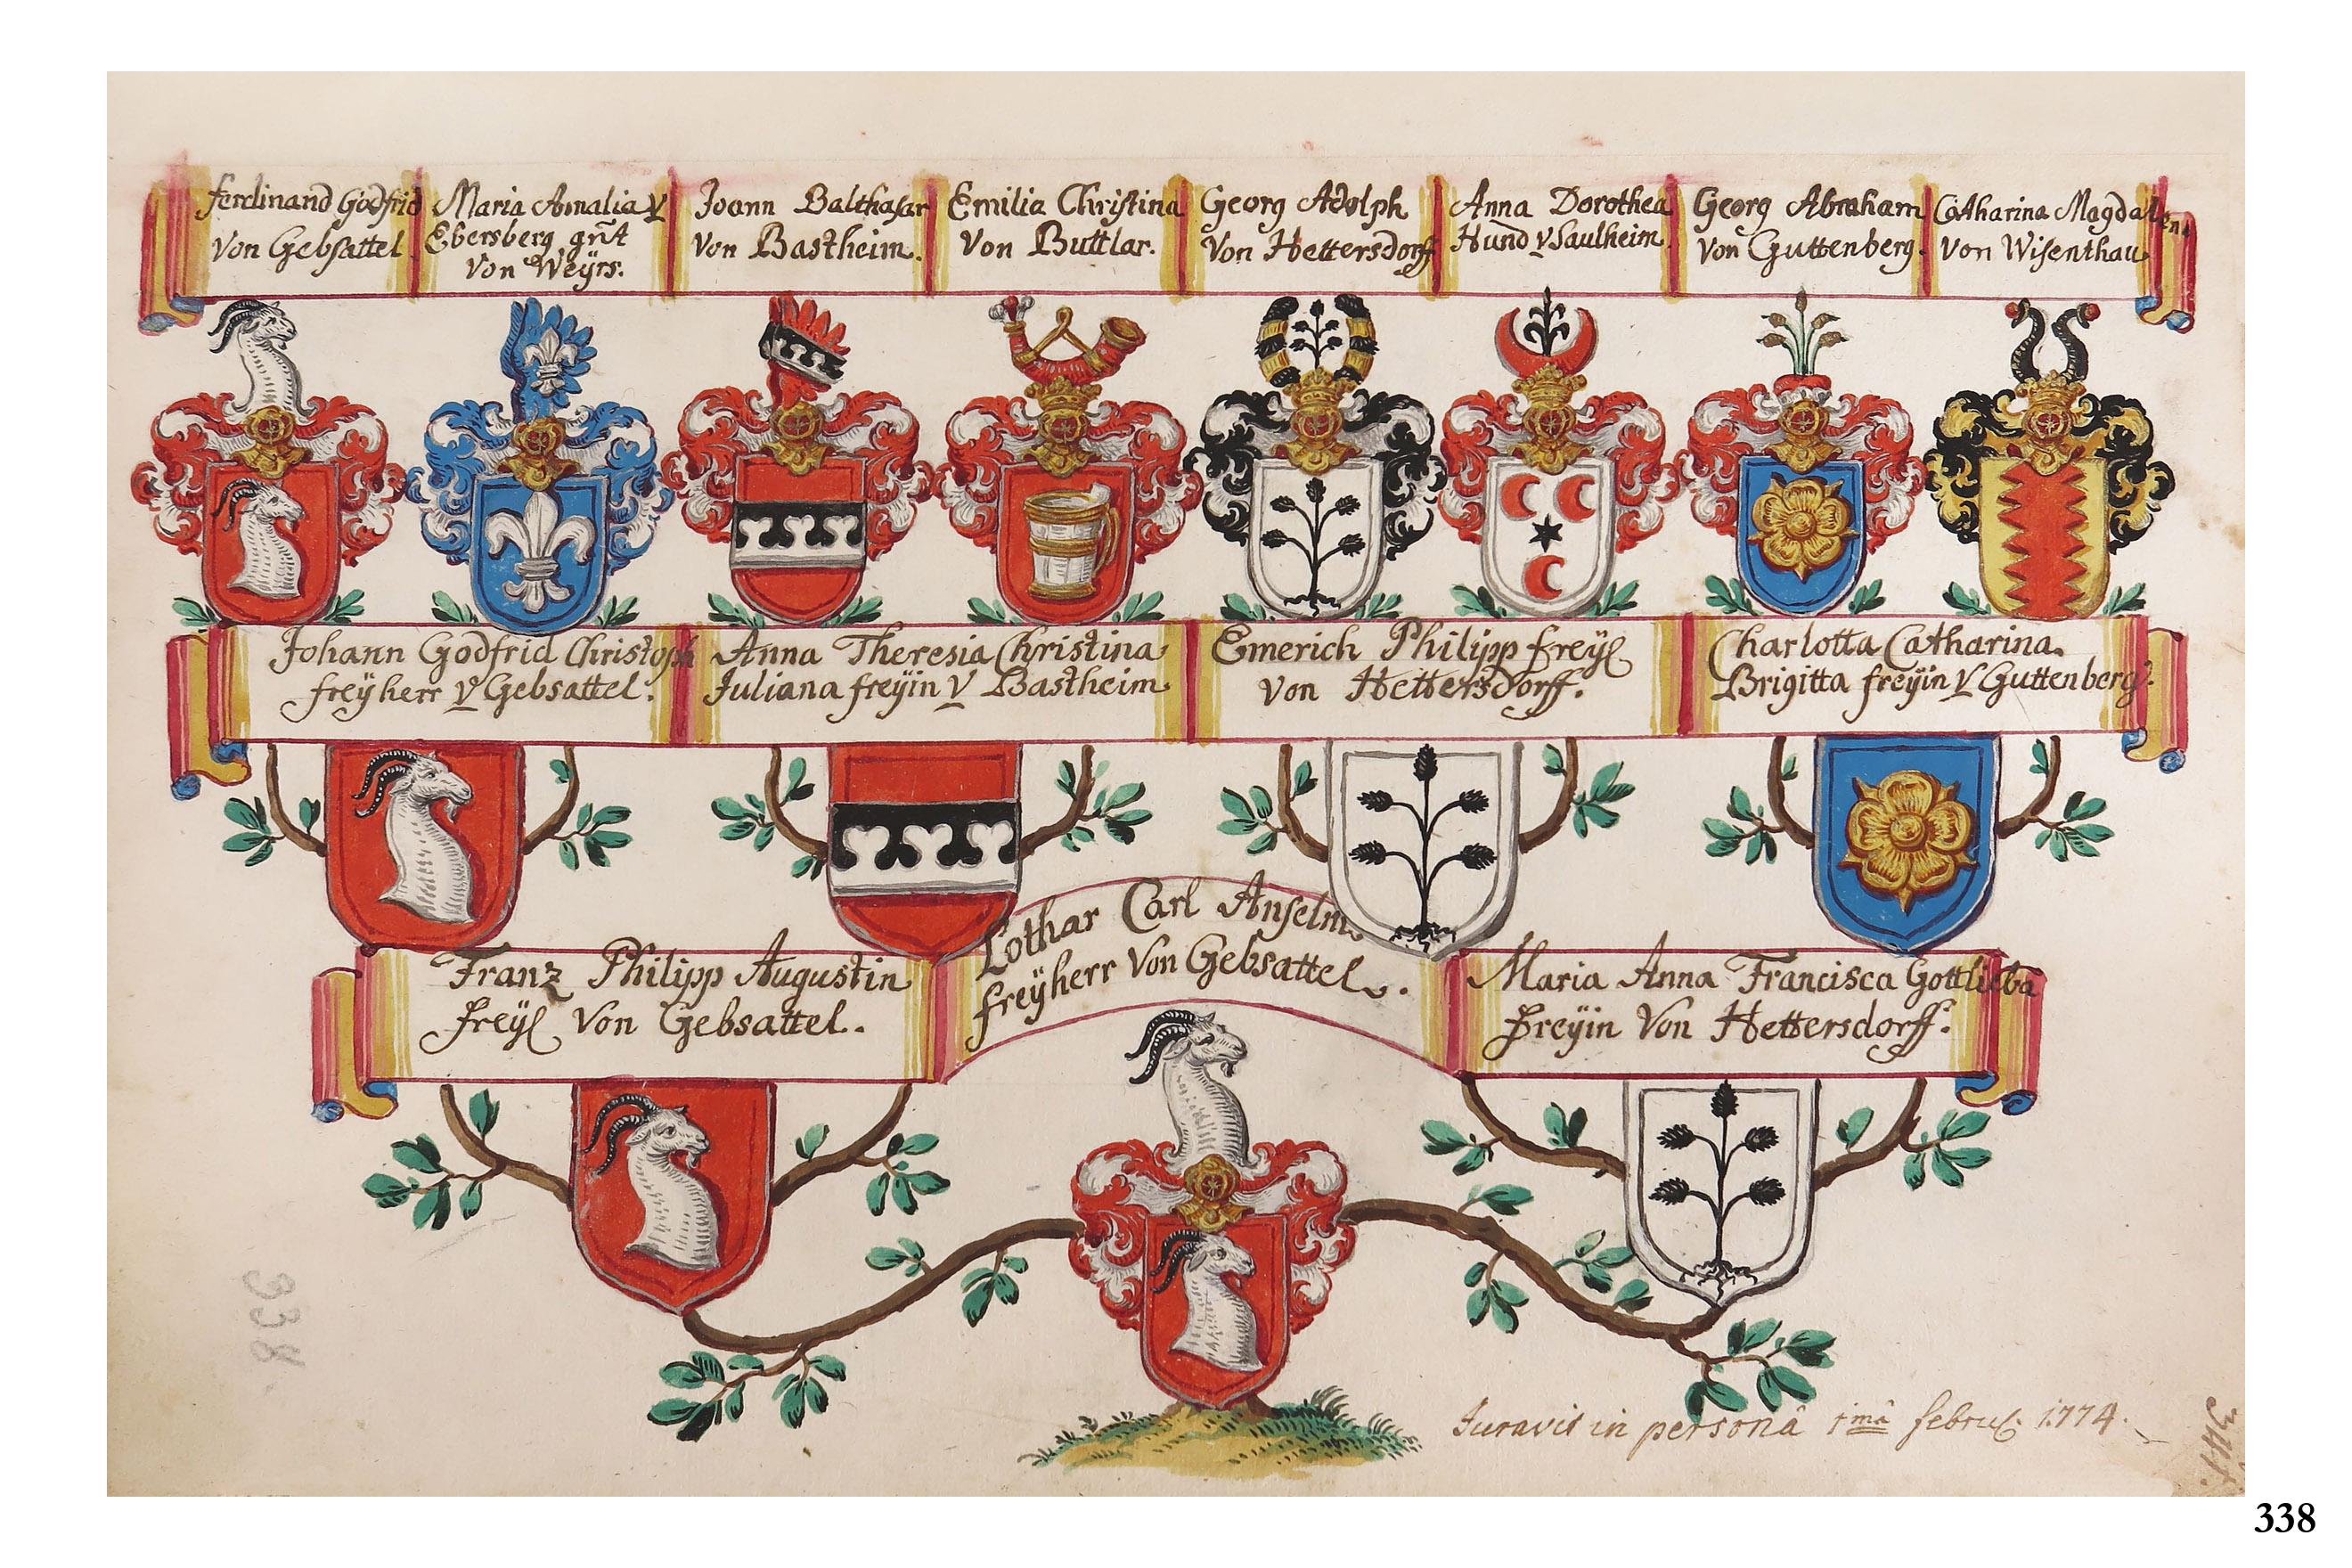 Ferdinand Godfrid
Von Gebsattel.
Maria Amalia v
Ebersberg gn̄t
Von Weÿrs.
Joann Balthasar
Von Bastheim.
Emilia Christina
Von Buttlar.
Georg Adolph
Von Hettersdorff
Anna Dorothea
Hund v Saulheim.
Georg Abraham
Von Guttenberg.
Catharina Magdalen.
Von Wisenthau
Johann Godfrid Christoph
freÿherr v Gebsattel.
Anna Theresia Christina
Juliana freÿin v Bastheim
Emerich Philipp freÿ
von Hettersdorff.
Charlotta Catharina
Brigitta freÿin v Guttenberg.
Franz Philipp Augustin
freÿ Von Gebsattel.
Lothar Carl Anselm
freÿherr Von Gebsattel.
Maria Anna Francisca Gottlieba
Freÿin Von Hettersdorff.
338
Juravit in personâ 1mâ febru 1774.
338